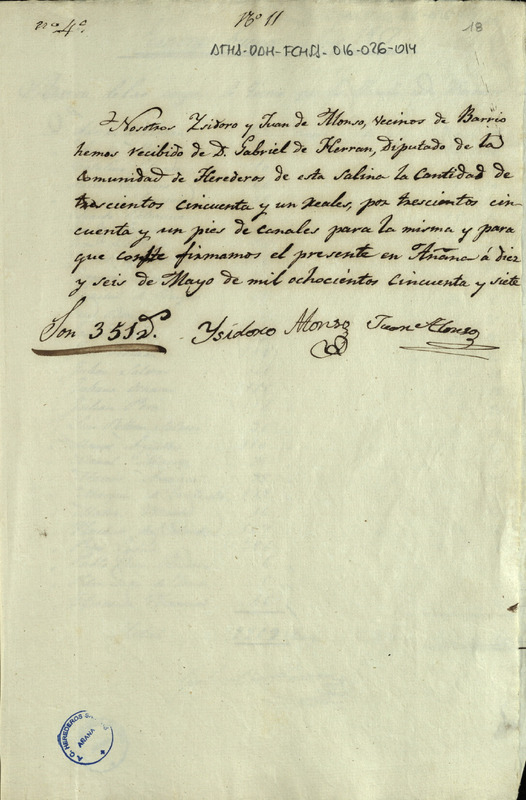 nº 4º
Nº 11
18
ATHA-DAH-FCHSA-016-026-014
Nosotros Ysidoro y Juan de Alonso, vecinos de Barrio
hemos recibido de D. Gabriel de Herran, Diputado de la
Comunidad de Herederos de esta Salina la Cantidad de
trescientos cincuenta y un reales, por trescientos cin
cuenta y un pies de canales para la misma y para
que conste firmamos el presente en Añana á diez
y seis de Mayo de mil ochocientos cincuenta y siete
Son 351
Ysidoro Alonso
Juan Alonso
HEREDEROS
AÑANA